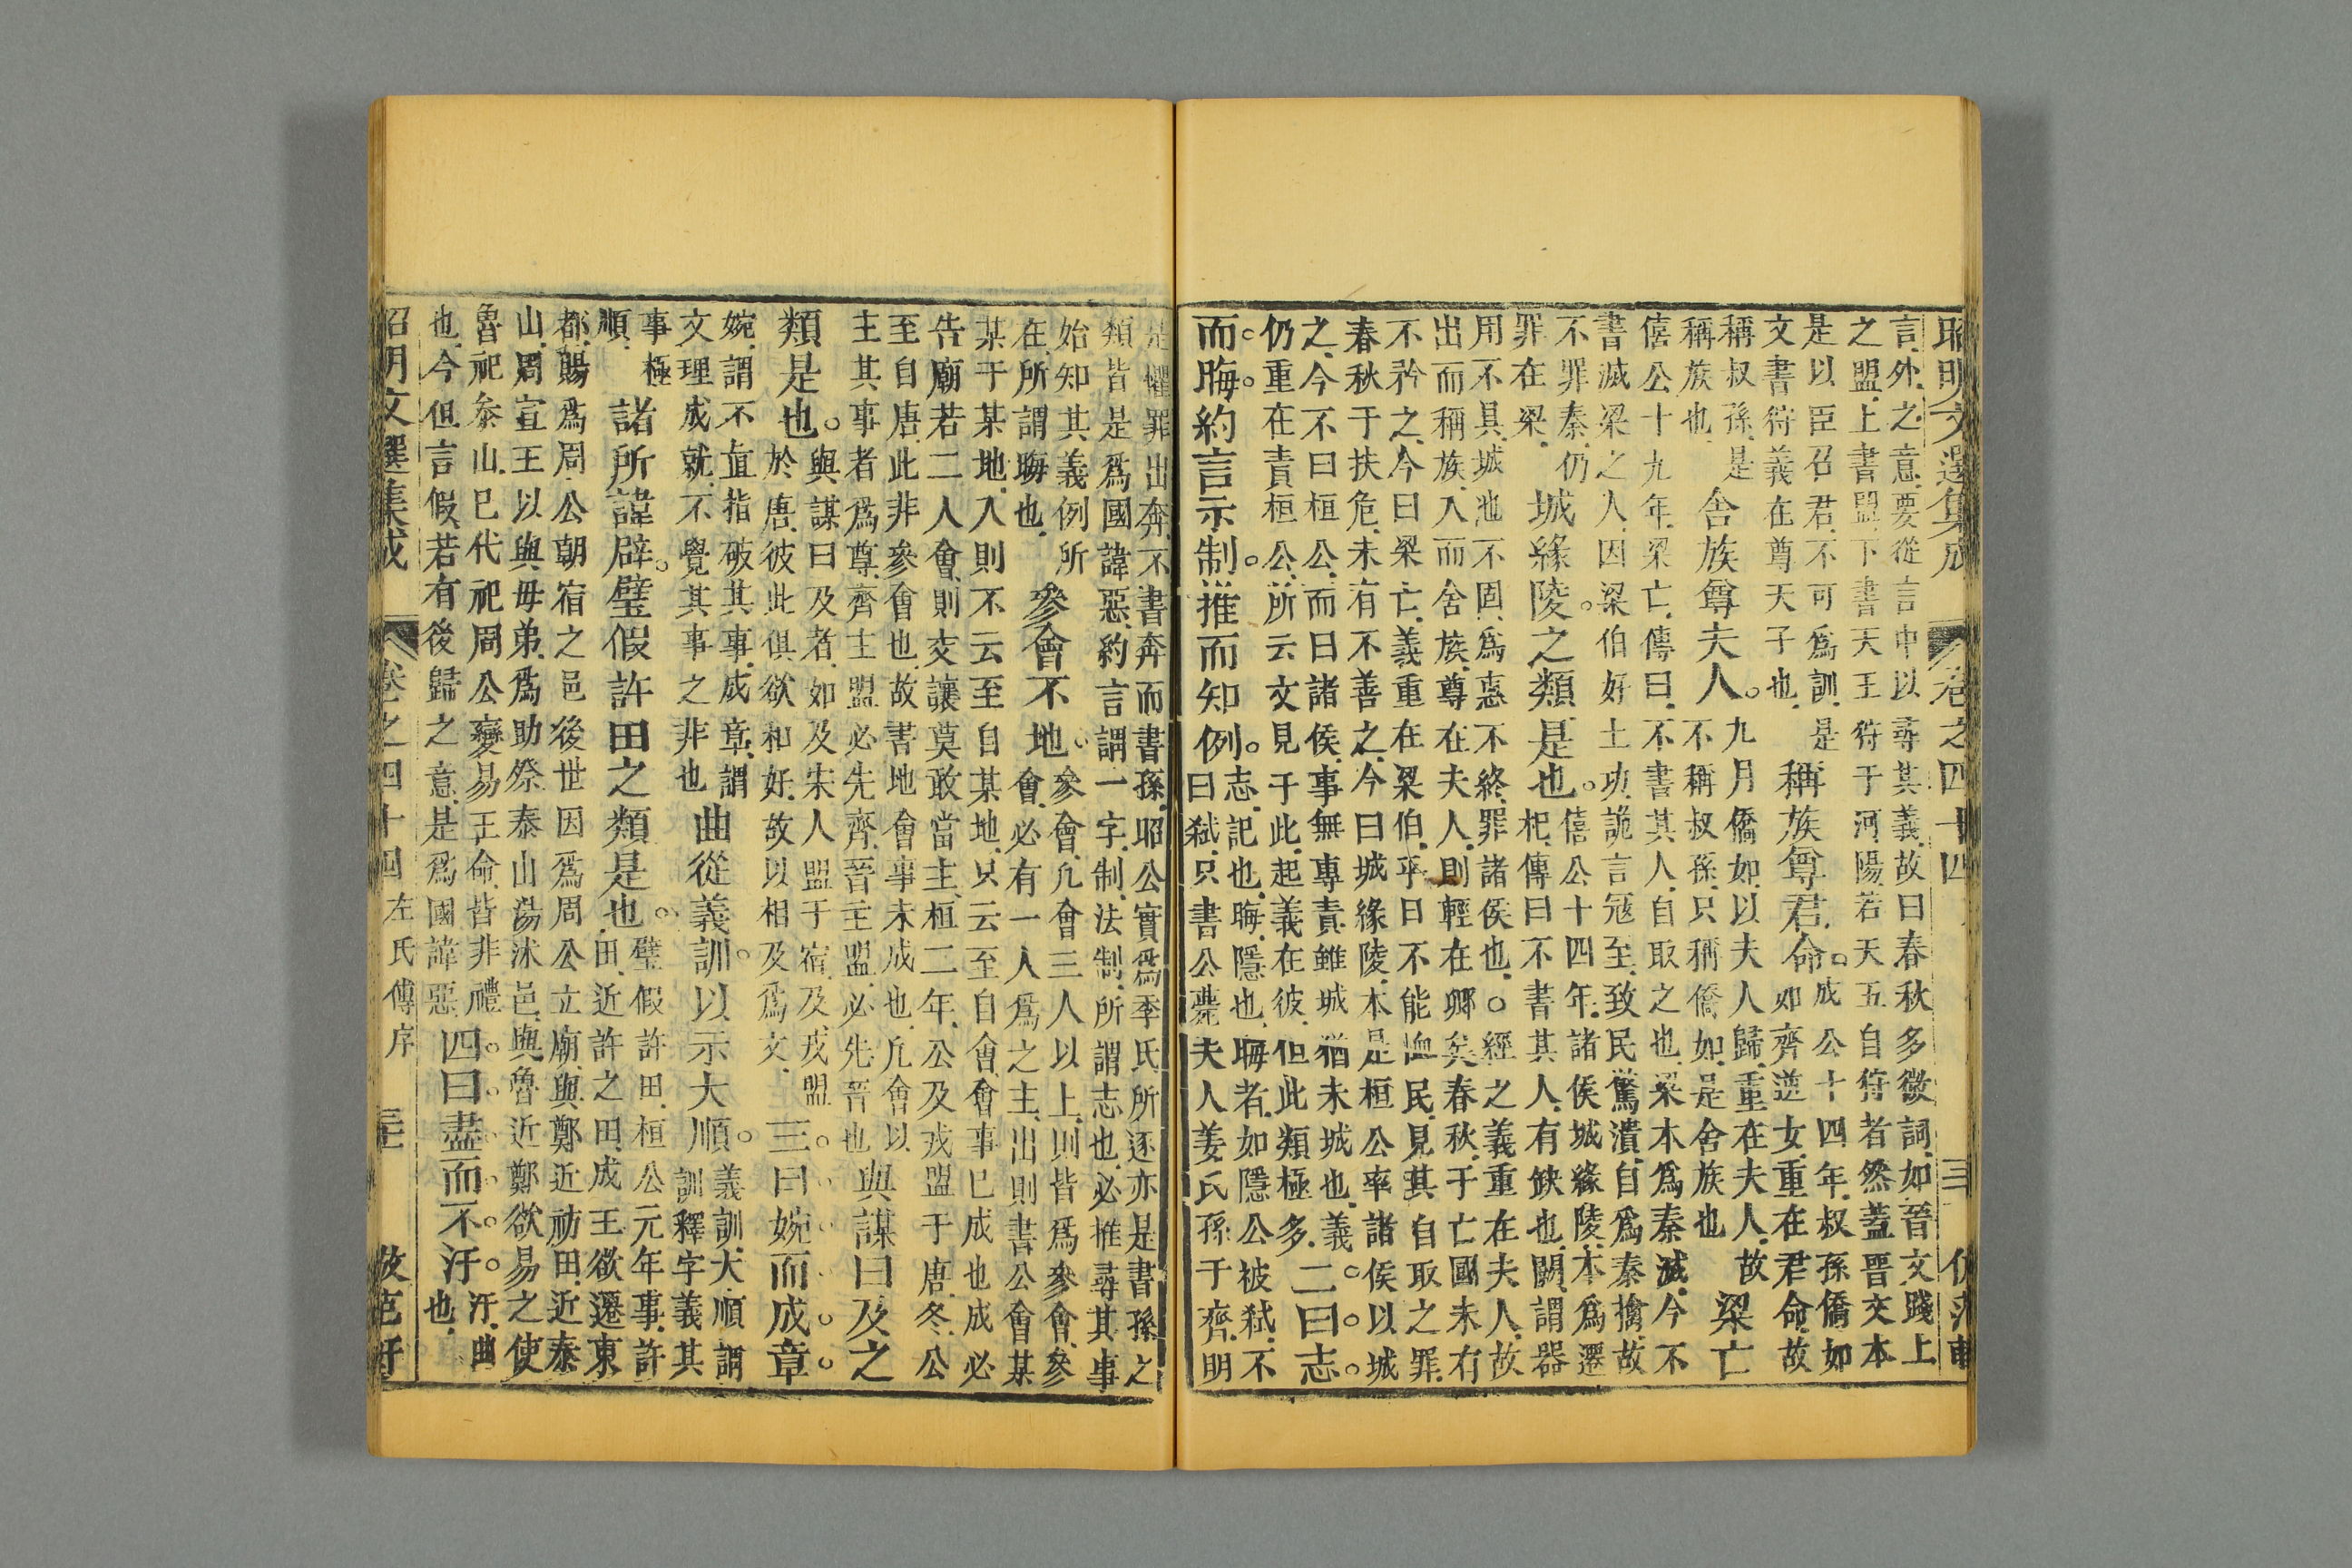 昭明文選集成 卷之四十四 三 仿范軒
言外之意要從言中以尋其義故曰春秋多微詞如晉文踐上
之盟上書盟下書天王狩于河陽若天王自狩者然蓋晉文本
是以臣召君不可爲訓是
文書狩義在尊天子也
稱族尊君命
成公十四年叔孫僑如
如齊逆女重在君命故
稱叔孫是
稱族也
舍族尊夫人
九月僑如以夫人歸重在夫人故
不稱叔孫只稱僑如是舍族也
梁亡
僖公十九年梁亡傳曰不書其人自取之也梁本爲秦滅今不
書滅梁之人因梁伯好土功詭言寇至致民驚潰自爲秦擒故
不罪秦仍
罪在梁
城緣陵之類是也
僖公十四年諸侯城緣陵本爲遷
杞傳曰不書其人有缺也闕謂器
用不具城池不固爲惠不終罪諸侯也○經之義重在夫人故
出而稱族入而舍族尊在夫人則輕在卿矣春秋于亡國未有
不矜之今曰梁亡義重在梁伯乎日不能恤民見其自取之罪
春秋于扶危未有不善之今曰城緣陵本是桓公率諸侯以城
之今不曰桓公而曰諸侯事無專責雖城猶未城也義
仍重在責桓公所云文見于此起義在彼但此類極多
二曰志
而晦約言示制推而知例
志記也晦隱也晦者如隱公被弒不
曰弒只書公薨夫人姜氏孫于齊明
是懼罪出奔不書奔而書孫昭公實爲季氏所逐亦是書孫之
類皆是爲國諱惡約言謂一字制法制所謂志也必推尋其事
始知其義例所
在所謂晦也
參會不地
參會凡會三人以上則皆爲參會參
會必有一人爲之主出則書公會某
某于某地入則不云至自某地只云至自會會事已成也成必
告廟若二人會則交讓莫敢當主桓二年公及戎盟于唐冬公
至自唐此非參會也故書地會事未成也凡會以
主其事者爲尊齊主盟必先齊晉主盟必先晉也
與謀曰及之
類是也
與謀曰及者如及宋人盟于宿及戎盟
於唐彼此俱欲和好故以相及爲文
三曰婉而成章
婉謂不直指破其事成章謂
文理成就不覺其事之非也
曲從義訓以示大順
義訓大順謂
訓釋字義其
事極
順
諸所諱辟璧假許田之類是也
璧假許田桓公元年事許
田近許之田成王欲遷東
都賜爲周公朝宿之邑後世因爲周公立廟與鄭近祊田近泰
山周宣王以與母弟爲助祭泰山湯沐邑與魯近鄭欲易之使
魯祀泰山已代祀周公變易王命皆非禮
也今但言假若有後歸之意是爲國諱惡
四曰盡而不汙
汙曲
也
昭明文選集成 卷之四十四 左氏傳序 三 仿范軒